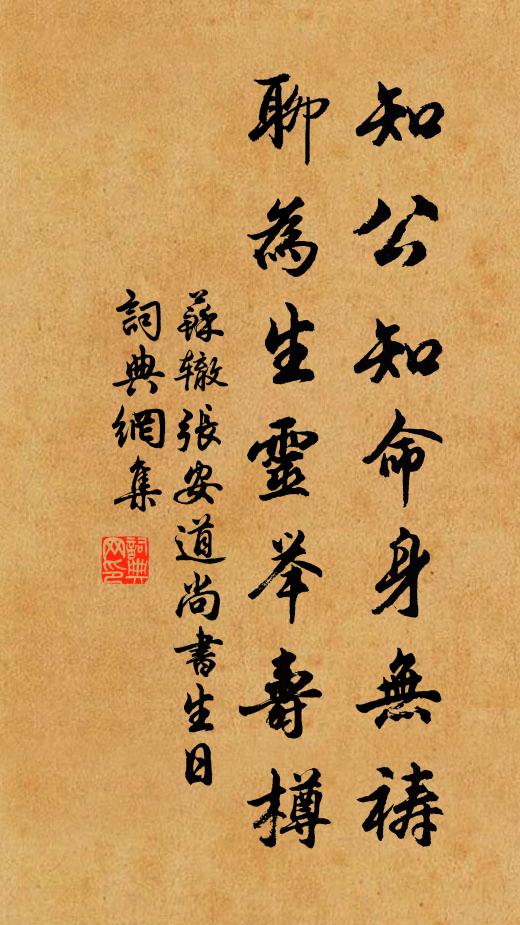 知公知命身無祷
聊為生靈举壽樽
蘇辙張安道尚書生日
詞典網集
詞典网印